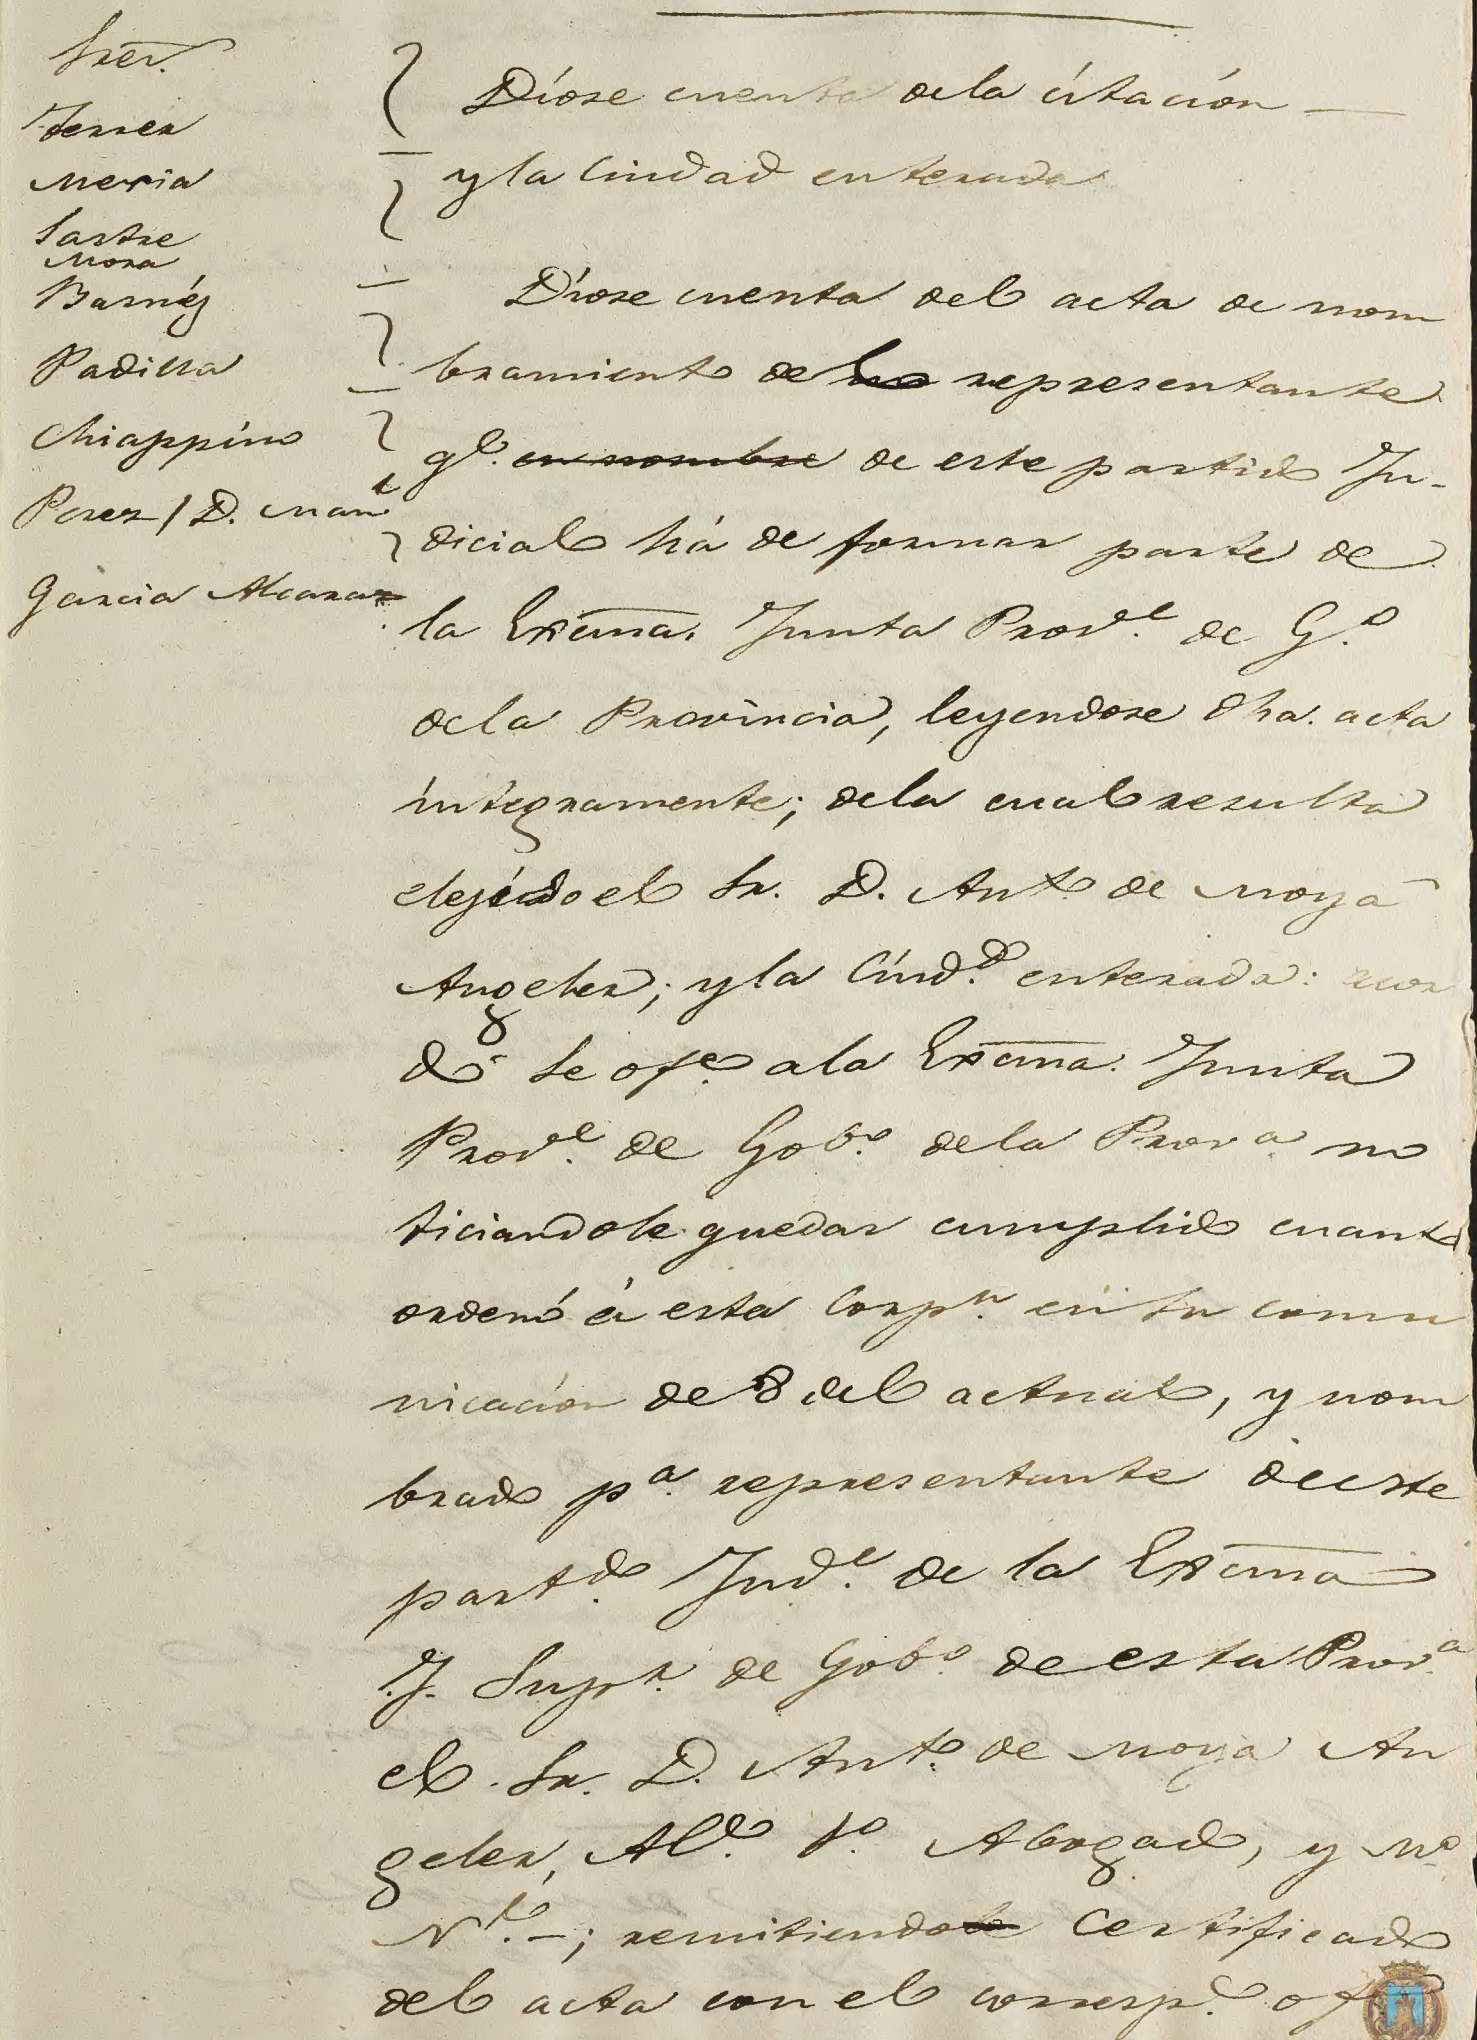 Sres.
Ferrer
Mexia
Sastre
Mora
Barnés
Padilla
Chiappino
Perez / D. Man.l
Garcia Alcaraz
Díose cuenta dela citación
y la Ciudad enterada
Díose cuenta del acta de nom
bramiento del representante
q.e en nombre de este partido Ju-
dicial há de formar parte de
la Excma. Junta Prov.l de G.o
dela Provincia, leyendose dha. acta
integramente; dela cual resulta
elejido el Sr. D. Ant.o de Moya
Angeler; y la Ciud.d enterada: acor
dó se ofe. a la Excma. Junta
Prov.l de Gob.o dela Prov.a no
ticiandole quedar cumplido cuanto
ordenó á esta Corp.n en su comu
nicación de 8 del actual, y nom
brado p.a representante de este
part.do Jud.l de la Excma
J. Sup.r de Gob.o de esta Prov.a
el Sr. D. Ant.o de Moya An
geler, Al.e 1.o Abogado, y
; remitiendole Certificado
del acta con el corresp.te of